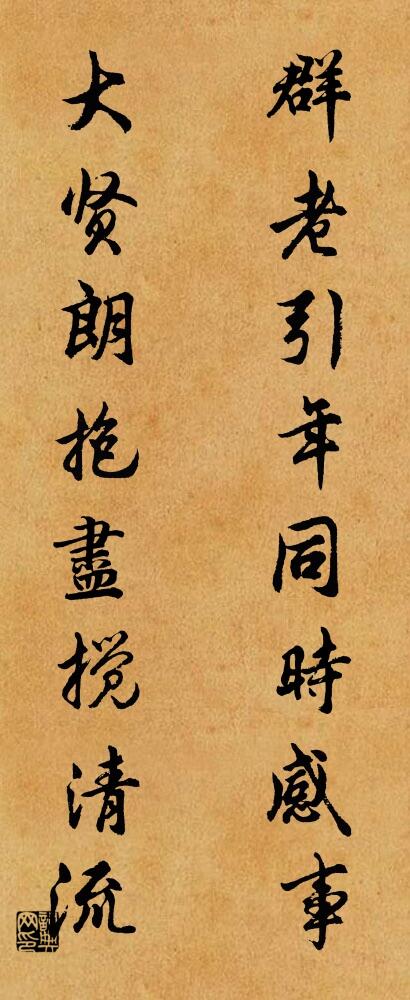 群老引年同時感事
大贤朗抱盡揽清流